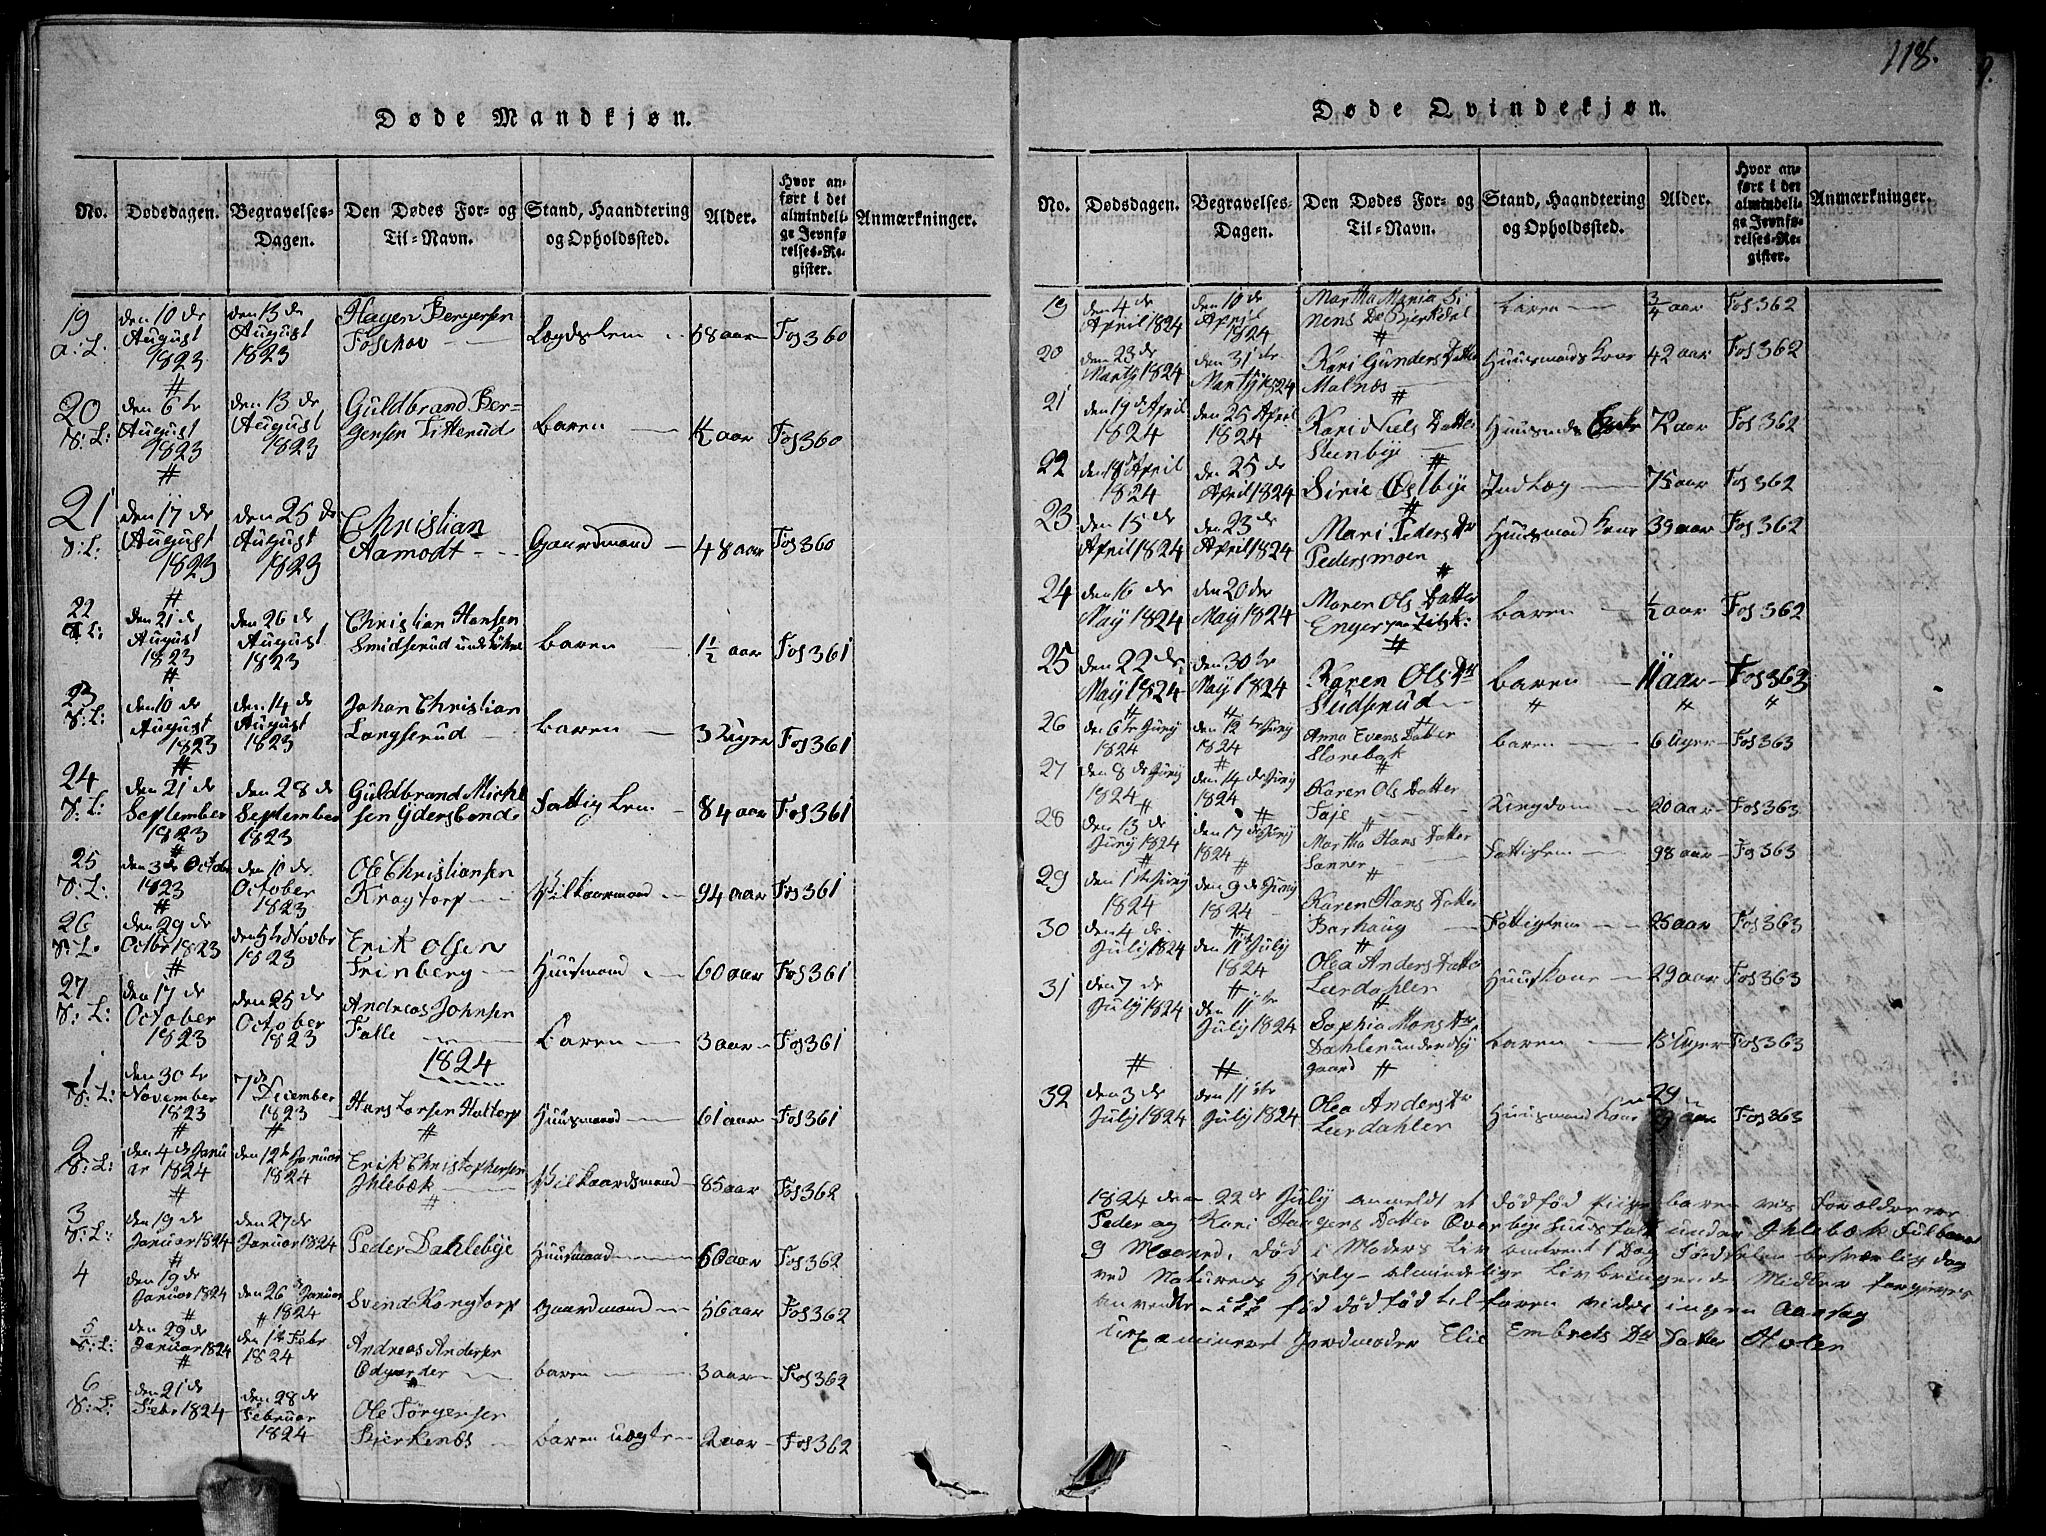 118.
Døde Mandkjøn.
No. Dødsdagen. Begravelses-Dagen. Den Dødes For- og Til-Navn. Stand, Haandtering og Opholdssted. Alder. Hvor anført i det almindelige Jevnførelses-Register. Anmærkninger.
19 den 10 de August 1823 den 13 de August 1823 Hagen Bergersen Foschov Lægdslem 58 aar Fos 360
20 den 6 te August 1823 den 13 de August 1823 Guldbrand Bergersen Titterud baren ½ aar Fos 360
21 den 17 de August 1823 den 25 de August 1823 Christian Aamodt Gaardmand 48 aar Fos 360
22 den 21 de August 1823 den 26 de August 1823 Christian Hansen Smidsrud baren 1½ aar Fos 361
23 den 10 de August 1823 den 14 de August 1823 Johan Christian Langserud baren 3 Uger Fos 361
24 den 21 de September 1823 den 28 de September 1823 Guldbrand Michelsen Ydersbonde Fattig Lem 84 aar Fos 361
25 den 3 de October 1823 den 10 de October 1823 Ole Christiansen Krogtorp Vilkaarmand 94 aar Fos 361
26 den 29 de Octbr 1823 den 5 te Novbr 1823 Erik Olsen Trinberg Huusmand 60 aar Fos 361
27 den 17 de October 1823 den 25 de October 1823 Andreas Johnsen Falle baren 3 aar Fos 361
1824
1 den 30 te November 1823 7 de December 1823 Hans Larsen Holtorp Huusmand 61 aar Fos 361
2 den 4 de Januar 1824 den 12 te Januar 1824 Erik Christophersen Ihlebæk Vilkaardsmand 85 aar Fos 362
3 den 19 de Januar 1824 den 27 de Januar 1824 Peder Dahlebye Huusmand 60 aar Fos 362
4 den 19 de Januar 1824 den 26 de Januar 1824 Svend Kongtorp Gaardmand 56 aar Fos 362
5 den 29 de Januar 1824 den 1 te Febr 1824 Andreas Andersen Odgarder baren 3 aar Fos 362
6 den 21 de Febr 1824 den 28 de Februar 1824 Ole Jørgensen Bierkenæs baren 2 aar Fos 362
Døde Qvindekjøn.
No. Dødsdagen. Begravelses-Dagen. Den Dødes For- og Til-Navn. Stand, Haandtering og Opholdssted. Alder. Hvor anført i det almindelige Jevnførelses-Register. Anmærkninger.
19 den 4 de April 1824 den 10 de April 1824 Martha Maria Simens Dr Bjerkdal baren ¾ aar Fos 362
20 den 23 de Martij 1824 den 31 te Martij 1824 Kari Gunders Datter Malnæs Huusmands Kone 42 aar Fos 362
21 den 19 de April 1824 den 25 April 1824 Kari Niels Datter Steenbye Huusmds Enke 72 aar Fos 362
22 den 18 April 1824 den 25 de April 1824 Sirie Østbye IndLæg 75 aar Fos 362
23 den 15 de April 1824 den 23 de April 1824 Mari Peders Dr Pedersmoen Huusmand Kone 39 aar Fos 362
24 den 16 de May 1824 den 20 de May 1824 Maren Ols Datter Enger baren ½ aar Fos 362
25 den 22 de May 1824 den 30 te May 1824 Karen Ols Dtr Sudserud baren 11 aar Fos 363
26 den 6 te Junij 1824 den 12 te Junij 1824 Anna Evens Datter Storebæk baren 6 Uger Fos 363
27 den 8 de Junij 1824 den 14 de Junij 1824 Karen Ols Datter Faje Ungdom 20 aar Fos 363
28 den 13 de Junij 1824 den 17 de Junij 1824 Martha Hans Datter Sanner Fattiglem 98 aar Fos 363
29 den 1 ste Junij 1824 den 9 de Junij 1824 Karen Hans Datter Barhaug Fattiglem 25 aar Fos 363
30 den 4 de Julij 1824 den 11 te July 1824 Olea Anders Datter Leerdahlen Huuskone 29 aar Fos 363
31 den 7 de July 1824 den 11 te Julij 1824 Sophia Mons Dr Dahlen under Nygaard baren 15 Uger Fos 363
32 den 3 de Julij 1824 den 11 te July 1824 Olea Anders Dr Leerdahlen Huusmand Kone 29 aar Fos 363
1824 den 22 de July anmeldt et dødfød Pige baren ves Forældre ere
Peder og Kari Haagens Datter Øverbye Huusfolk under Ihlebæk Fulbaaret
9 Maaned, død i Moders Liv omtrent 1 Dag Fødselen besværlig dog
ved Naturens Hielp almindelige Livbringende Midler forgieves
anvendte til faren vides ingen Aarsag
uexamineret Jordmoder Elie Embrets Dtr Datter Holen